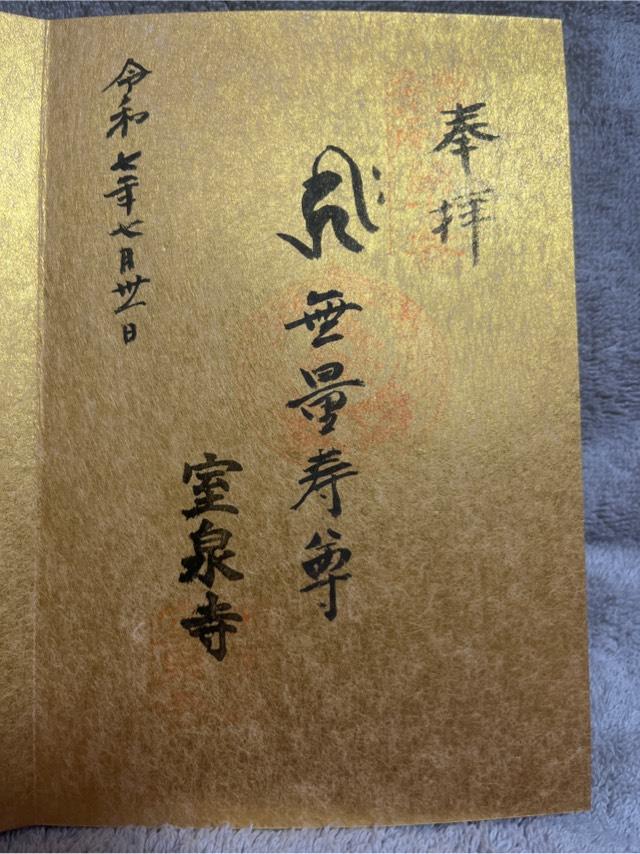 奉拝
𑖮𑖿𑖨𑖱𑖾 無量寿尊
室泉寺
令和七年七月卅一日